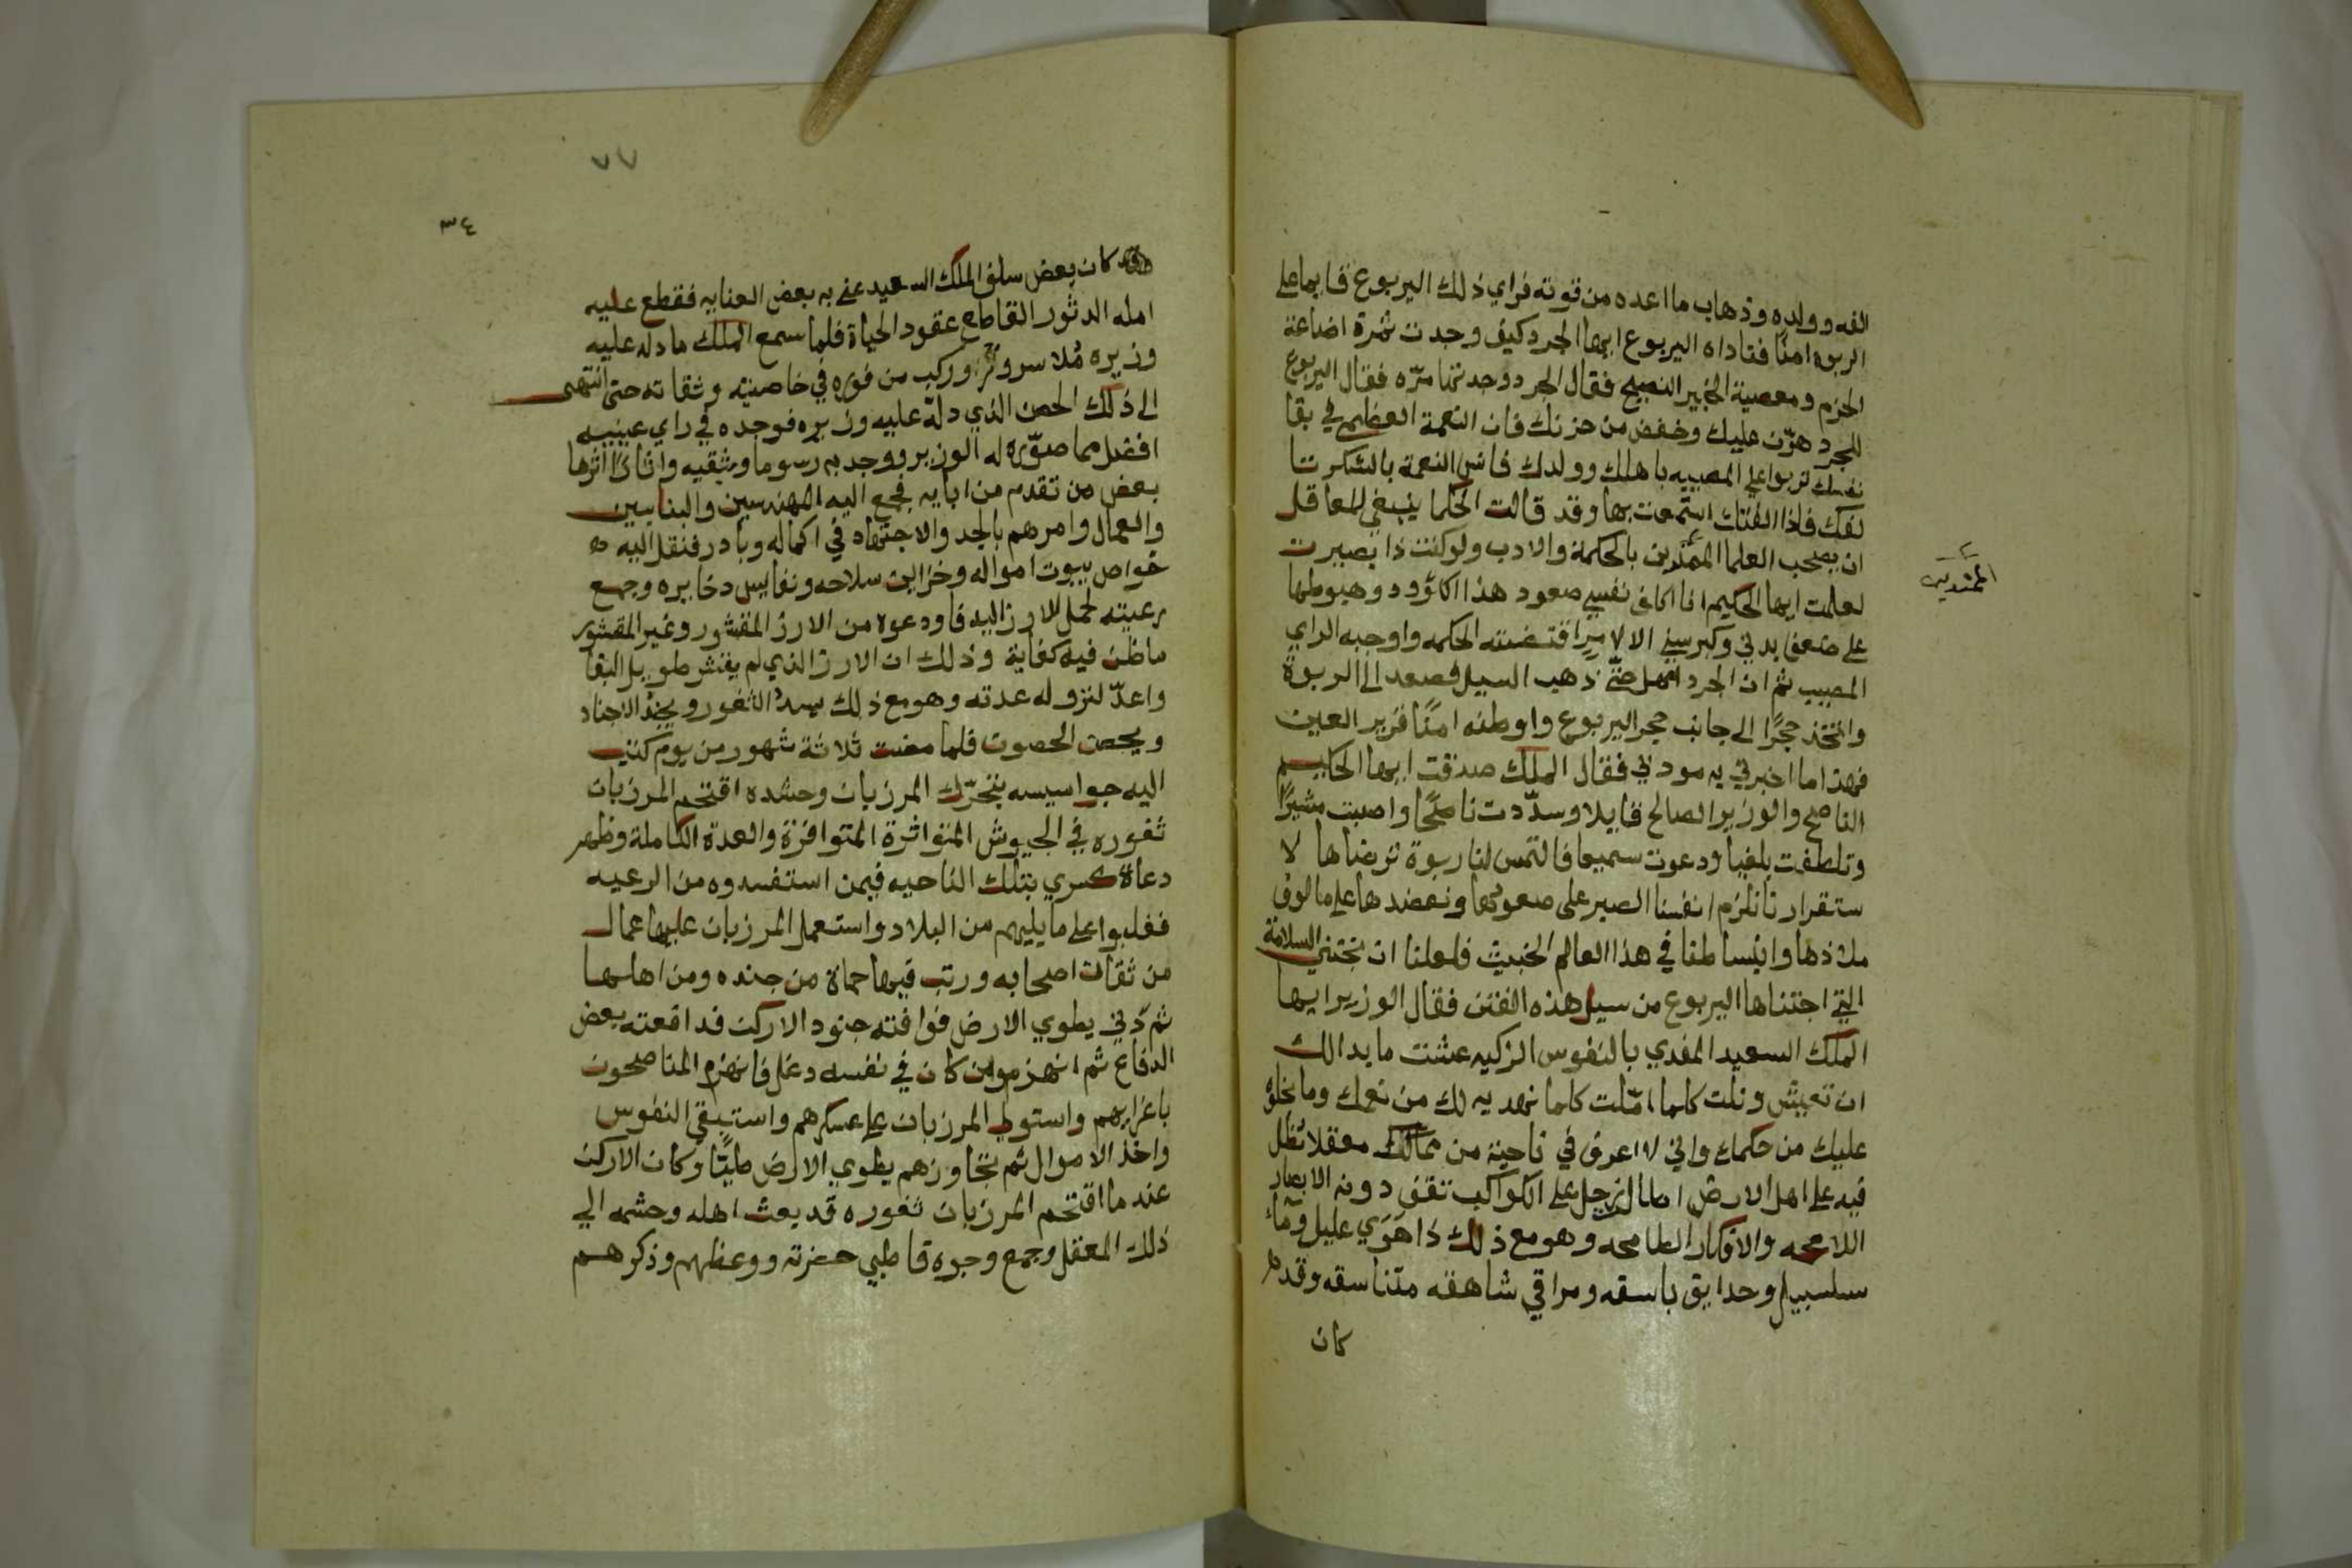 الفه وولده وذهاب ما اعده من قوته فراي ذلك اليربوع قايما على
الربوة امنًا فناداه اليربوع ايها الجرد كيف وجدت ثمرة اضاعة
الحزم ومعصية الخبير النصيح فقال الجرد وجدتها مرّه فقال اليربوع
للجرد هوّن عليك وخفض من حزنك فان النعمة العظمي في بقا
نفسك تربوا علي المصيبه باهلك وولدك فانس النعمة بالشكر تا
لفك فاذا الفتك استمتعت بها وقد قالت الحكما ينبغي للعاقل
ان يصحب العلما بالحكمة والادب ولو كنت ذا بصيرت
لعلمت ايها الحكيم انا اكلف نفسي صعود هذا الكؤود وهبوطها
علي ضعف بدني وكبر سني الا لامرٍ اقتضته الحكمه واوجبه الراي
المصيب ثم ان الجرد امهل حتّي ذهب السيل فصعد الي الربوة
واتّخذ حجرًا الي جانب حجر اليربوع واوطنه امنًا قرير العين
فهذا ما اخبرني به مودبي فقال الملك صدقت ايها الحكيم
الناصح والوزير الصالح قايلا وسدّدت ناطحًا واصبت مشيرًا
وتلطفت بليغًا ودعوت سميعا فالتمس لنا ربوة نرضاها لا
ستقرارنا نلزم انفسنا الصبر على صعوبتها ونعضدها على مالوف
ملاذها وانبساطنا في هذا العالم الخبيث فلعلنا ان نجتني السلامة
التي اجتناها اليربوع من سيل هذه الفتن فقال الوزير ايها
الملك السعيد المفدي بالنفوس الزكيه عشت ما بدا لك
ان تعيش ونلت كلما امّلت كلما نهديه لك من نعمك وما نجلوه
عليك من حكمك واني لا اعرف في ناحية من ممالكك معقلا تطل
فيه على اهل الارض اطلال زحل على الكواكب تقف دونه الابصار
اللامحه والافكار الطامحه وهو مع ذلك ذا هَوَي عليل وماءً
سلسبيل وحدايق باسقه ومراقي شاهقه متناسقه وقد
كان
٧٧
٣٤
وقد كان بعض سلف الملك السعيد عني به بعض العنايه فقطع عليه
امله الدثور القاطع عقود الحياة فلما سمع الملك ما دله عليه
وزيره وركب من فوره في خاصيته وثقاته حتى انتهى
الى ذلك الحصن الذي دلّه عليه وزيره فوجده في راي عينيه
افضل مما صوّره له الوزير ووجد به رسوما واثارًا اثرها
بعض من تقدم من ابايه فجمع اليه المهندسين والبنايين
والعمال وامرهم بالجد والاجتهاد في اكماله وبادر فنقل اليه
خواص بيوت امواله وخزاين سلاحه ونفايس دخايره وجمع
رعيته لحمل الارز اليه فاودعوه من الارز المقشور وغير المقشور
ما ظن فيه كفاية وذلك ان الارز الذي لم يقشر طويل البقا
واعدّ لنزوله عدته وهو مع ذلك يسدّ الثغور ويجنّد الاجناد
ويحصن الحصون فلما مضت ثلاثة شهور من يوم كتب
اليه جواسيسه بتحرّك المرزبان وحشده اقتحم المرزبان
ثغوره في الجيوش المتواترة المتوافزة والعدة الكاملة وظهر
دعاة كسري بتلك الناحيه فيمن استفسدوه من الرعيه
فغلبوا على ما يليهم من البلاد واستعمل المرزبان عليها عمال
من ثقات اصحابه ورتب فيها حماة من جنده ومن اهلها
ثم دني يطوي الارض فوافته جنود الاركن فدافعته بعض
الدفاع ثم انهزموا من كان في نفسه دغل فانهزم المناصحون
باغرايهم واستولي المرزبان على عسكرهم واستبقي النفوس
واخذ الاموال ثم تجاوزهم يطوي الارض طيًّا وكان الاركن
عند ما اقتحم المرزبان ثغوره قد بعث اهله وحشمه الي
ذلك المعقل وجمع وجوه قاطبي حضرته ووعظهم وذكرهم